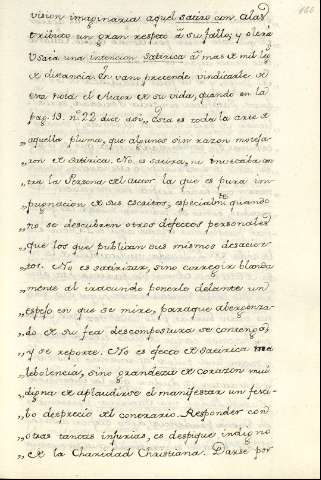 vision imaginaria aquel satiro con alas
tributo un gran respeto â su fallo, y olerá
Usaia una intencion satirica â mas de mil leg.
de distancia. En vano pretende vindicarle de
esta nota el Autor de su vida, quando en la
pag. 13. nº 22 dice asi, Esta es toda la arte de
„ aquella pluma, que algunos sin razon moteja-
„ ron de satirica. No es satira, ni invectiva con
„ tra la Persona del autor la que es pura im-
„ pugnacion de sus escritos, especialmte quando
„ no se descubren otros defectos personales
„ que los que publican sus mismos desacier-
„ tos. No es satirizar, sino corregir blanda
„ mente al iracundo ponerle delante un
„ espejo en que se mire, paraque abergonza-
„ do de su fea descompostura se contenga,
„ y se reporte. No es efecto de satirica ma
„ lebolencia, sino grandeza de corazon mui
„ digna de aplaudirse el manifestar un festi-
„ bo desprecio del contrario. Responder con
„ otras tantas injurias, es despique indigno
„ de la Charidad Christiana. Darse por